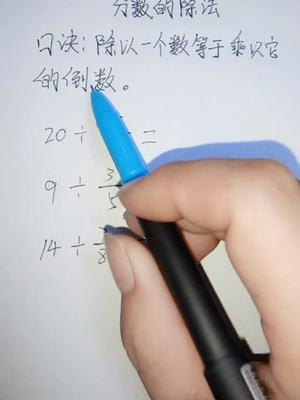 分数的除法
口诀:除以一个数等于乘以它
的倒数。
20 ÷ =
9 ÷ 3/5
14 ÷ /8